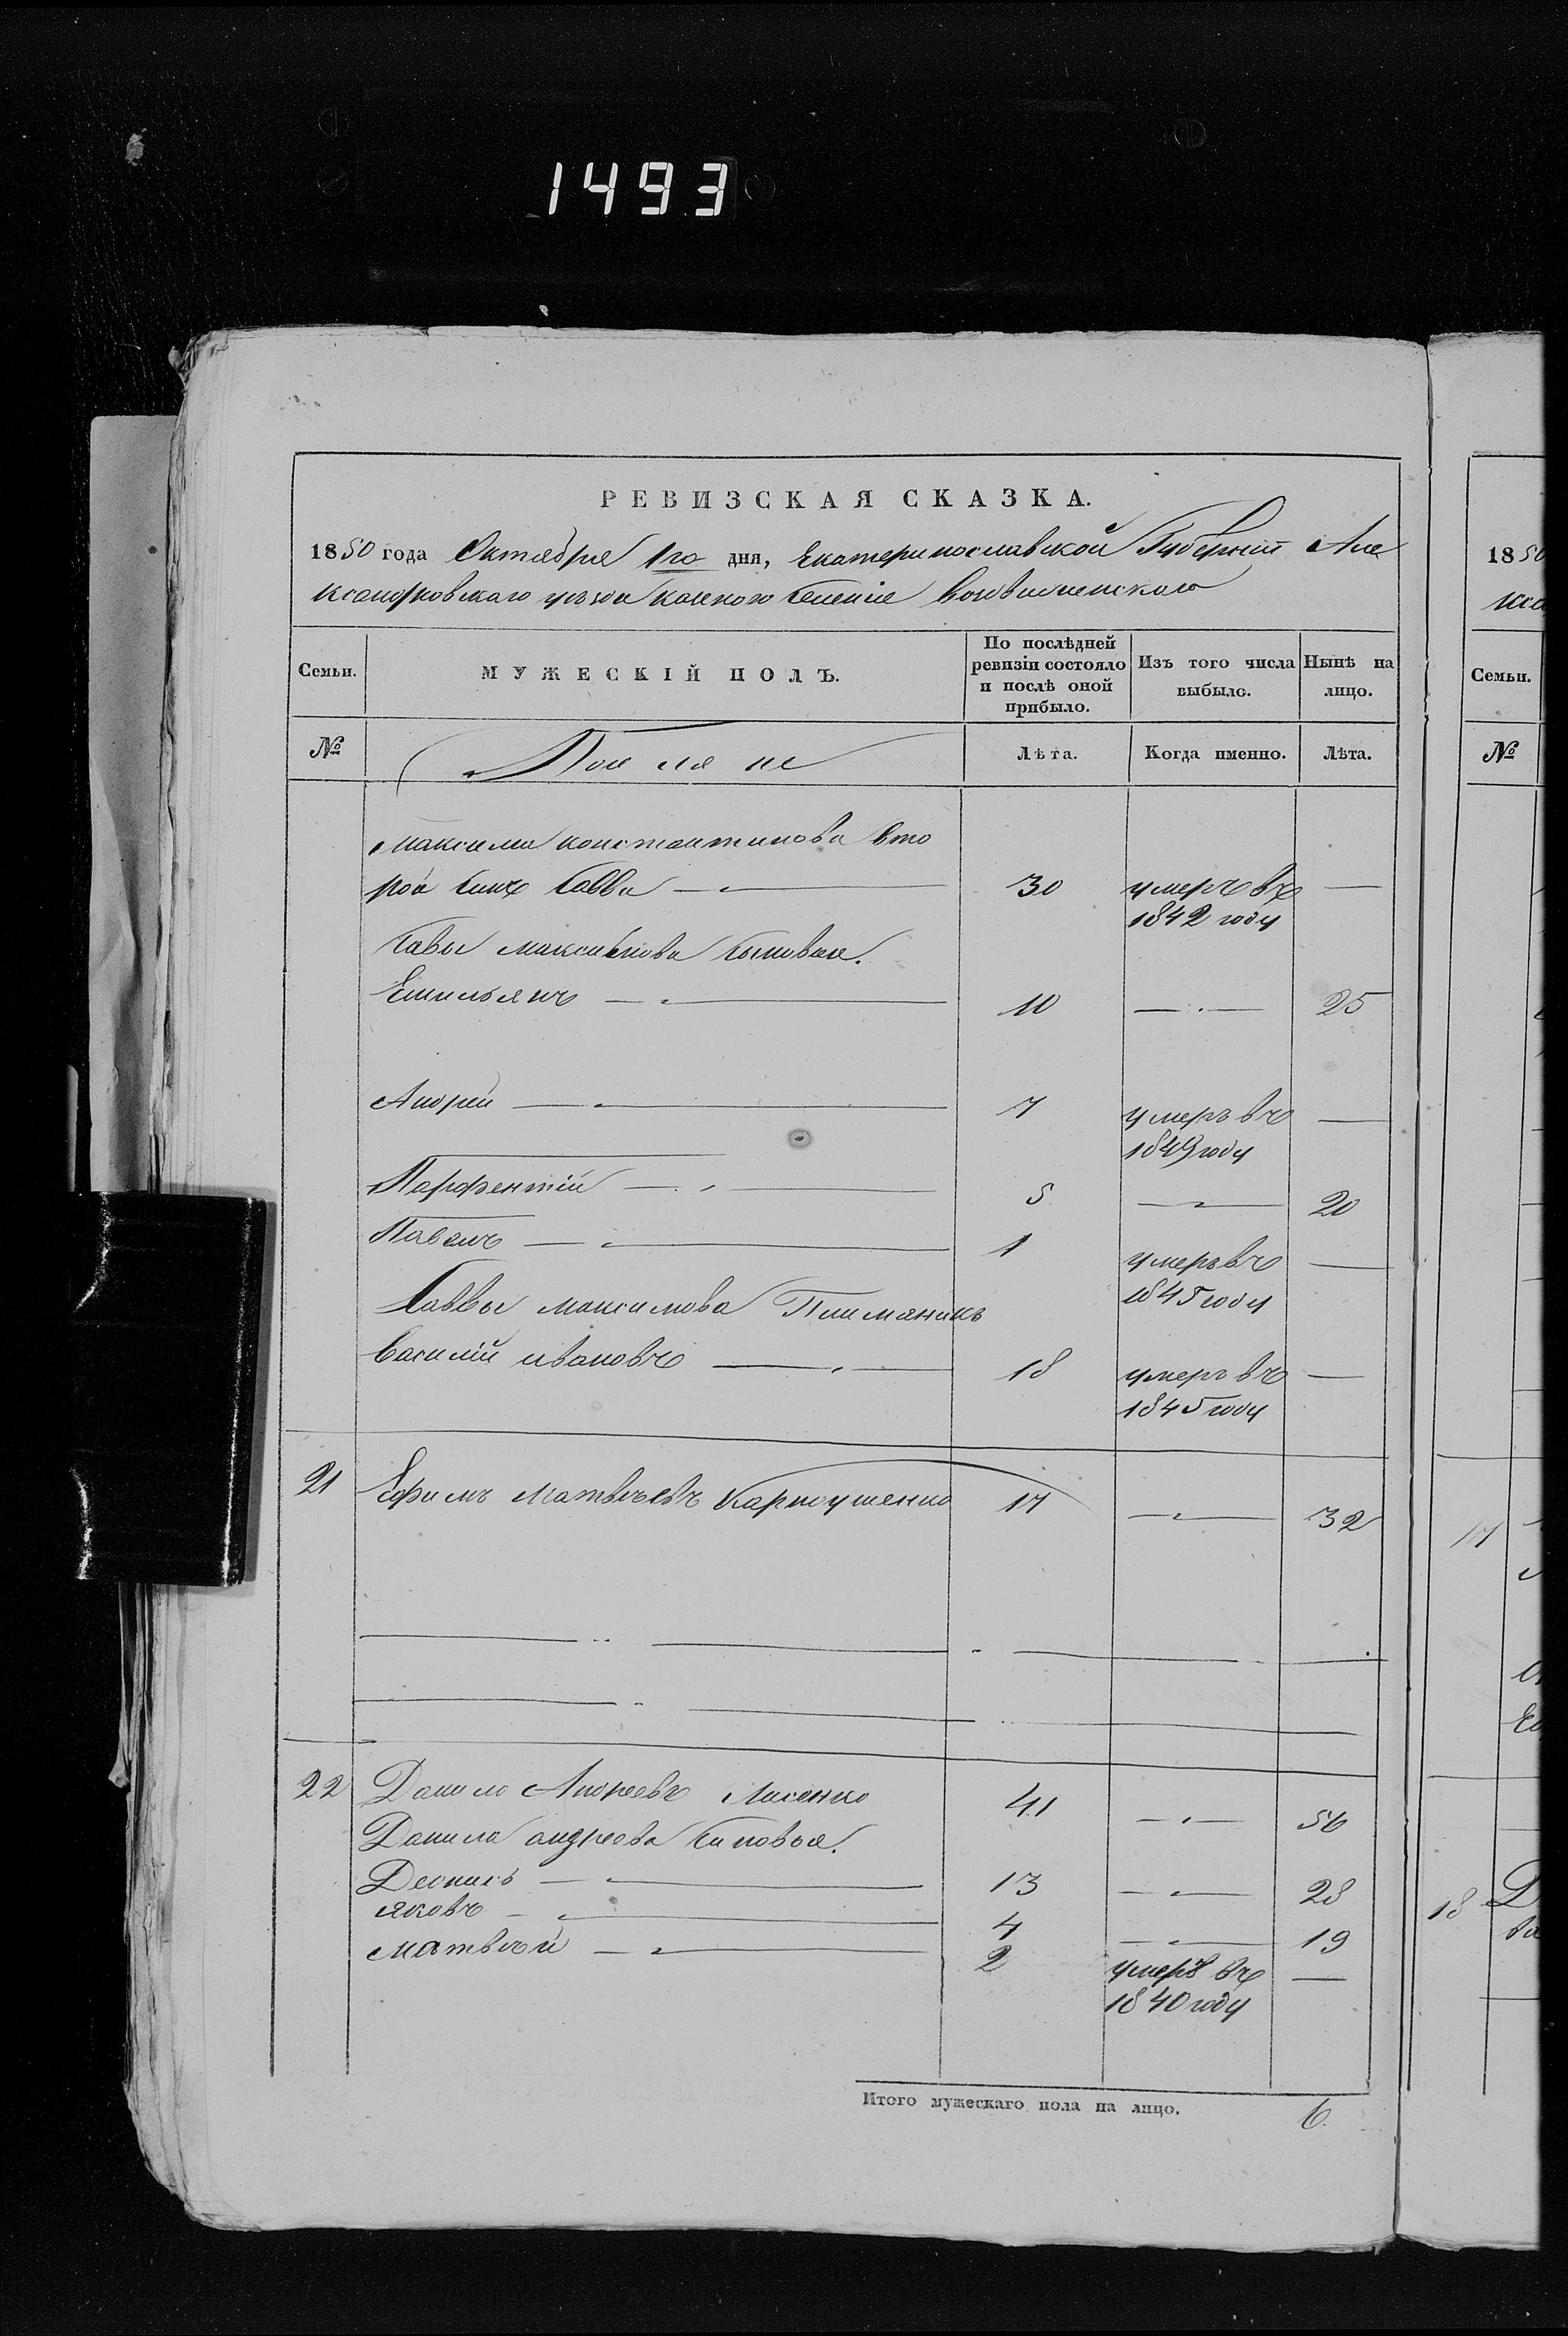 1493
РЕВИЗСКАЯ СКАЗКА.
1850 года Октября 1го дня, Екатеринославской Губерніи Але
ксандровскаго уѣзда казеного Селенія Воздвиженского
Семьи. МУЖЕСКІЙ ПОЛЪ. По послѣдней ревизіи состояло и послѣ оной прибыло. Изъ того числа выбыло. Нынѣ на лицо.
№ Поселяне Лѣта. Когда именно. Лѣта.
Максима Константинова вто
рой Синъ Савва — 30 умеръ въ —
1842 году
Савы Максимова Сыновья.
Емильянъ — 10 — 25
Андрей — 7 умеръ въ —
1849 году
Парфентій — 5 — 20
Павелъ — 1 умеръ въ —
1845 году
Саввы Максимова Племяникъ
Василій Ивановъ — 18 умеръ въ —
1845 году
21 Ефимъ Матвѣевъ Карпушенко 17 — 32
22 Данило Андреевъ Лисенко 41 — 56
Данила андреева Синовья.
Деонисъ — 13 — 28
Яковъ — 4 — 19
Матвѣй — 2 умеръ въ —
1840 году
Итого мужескаго пола на лицо. 6.
1850
Семьи.
№
17
18 Д